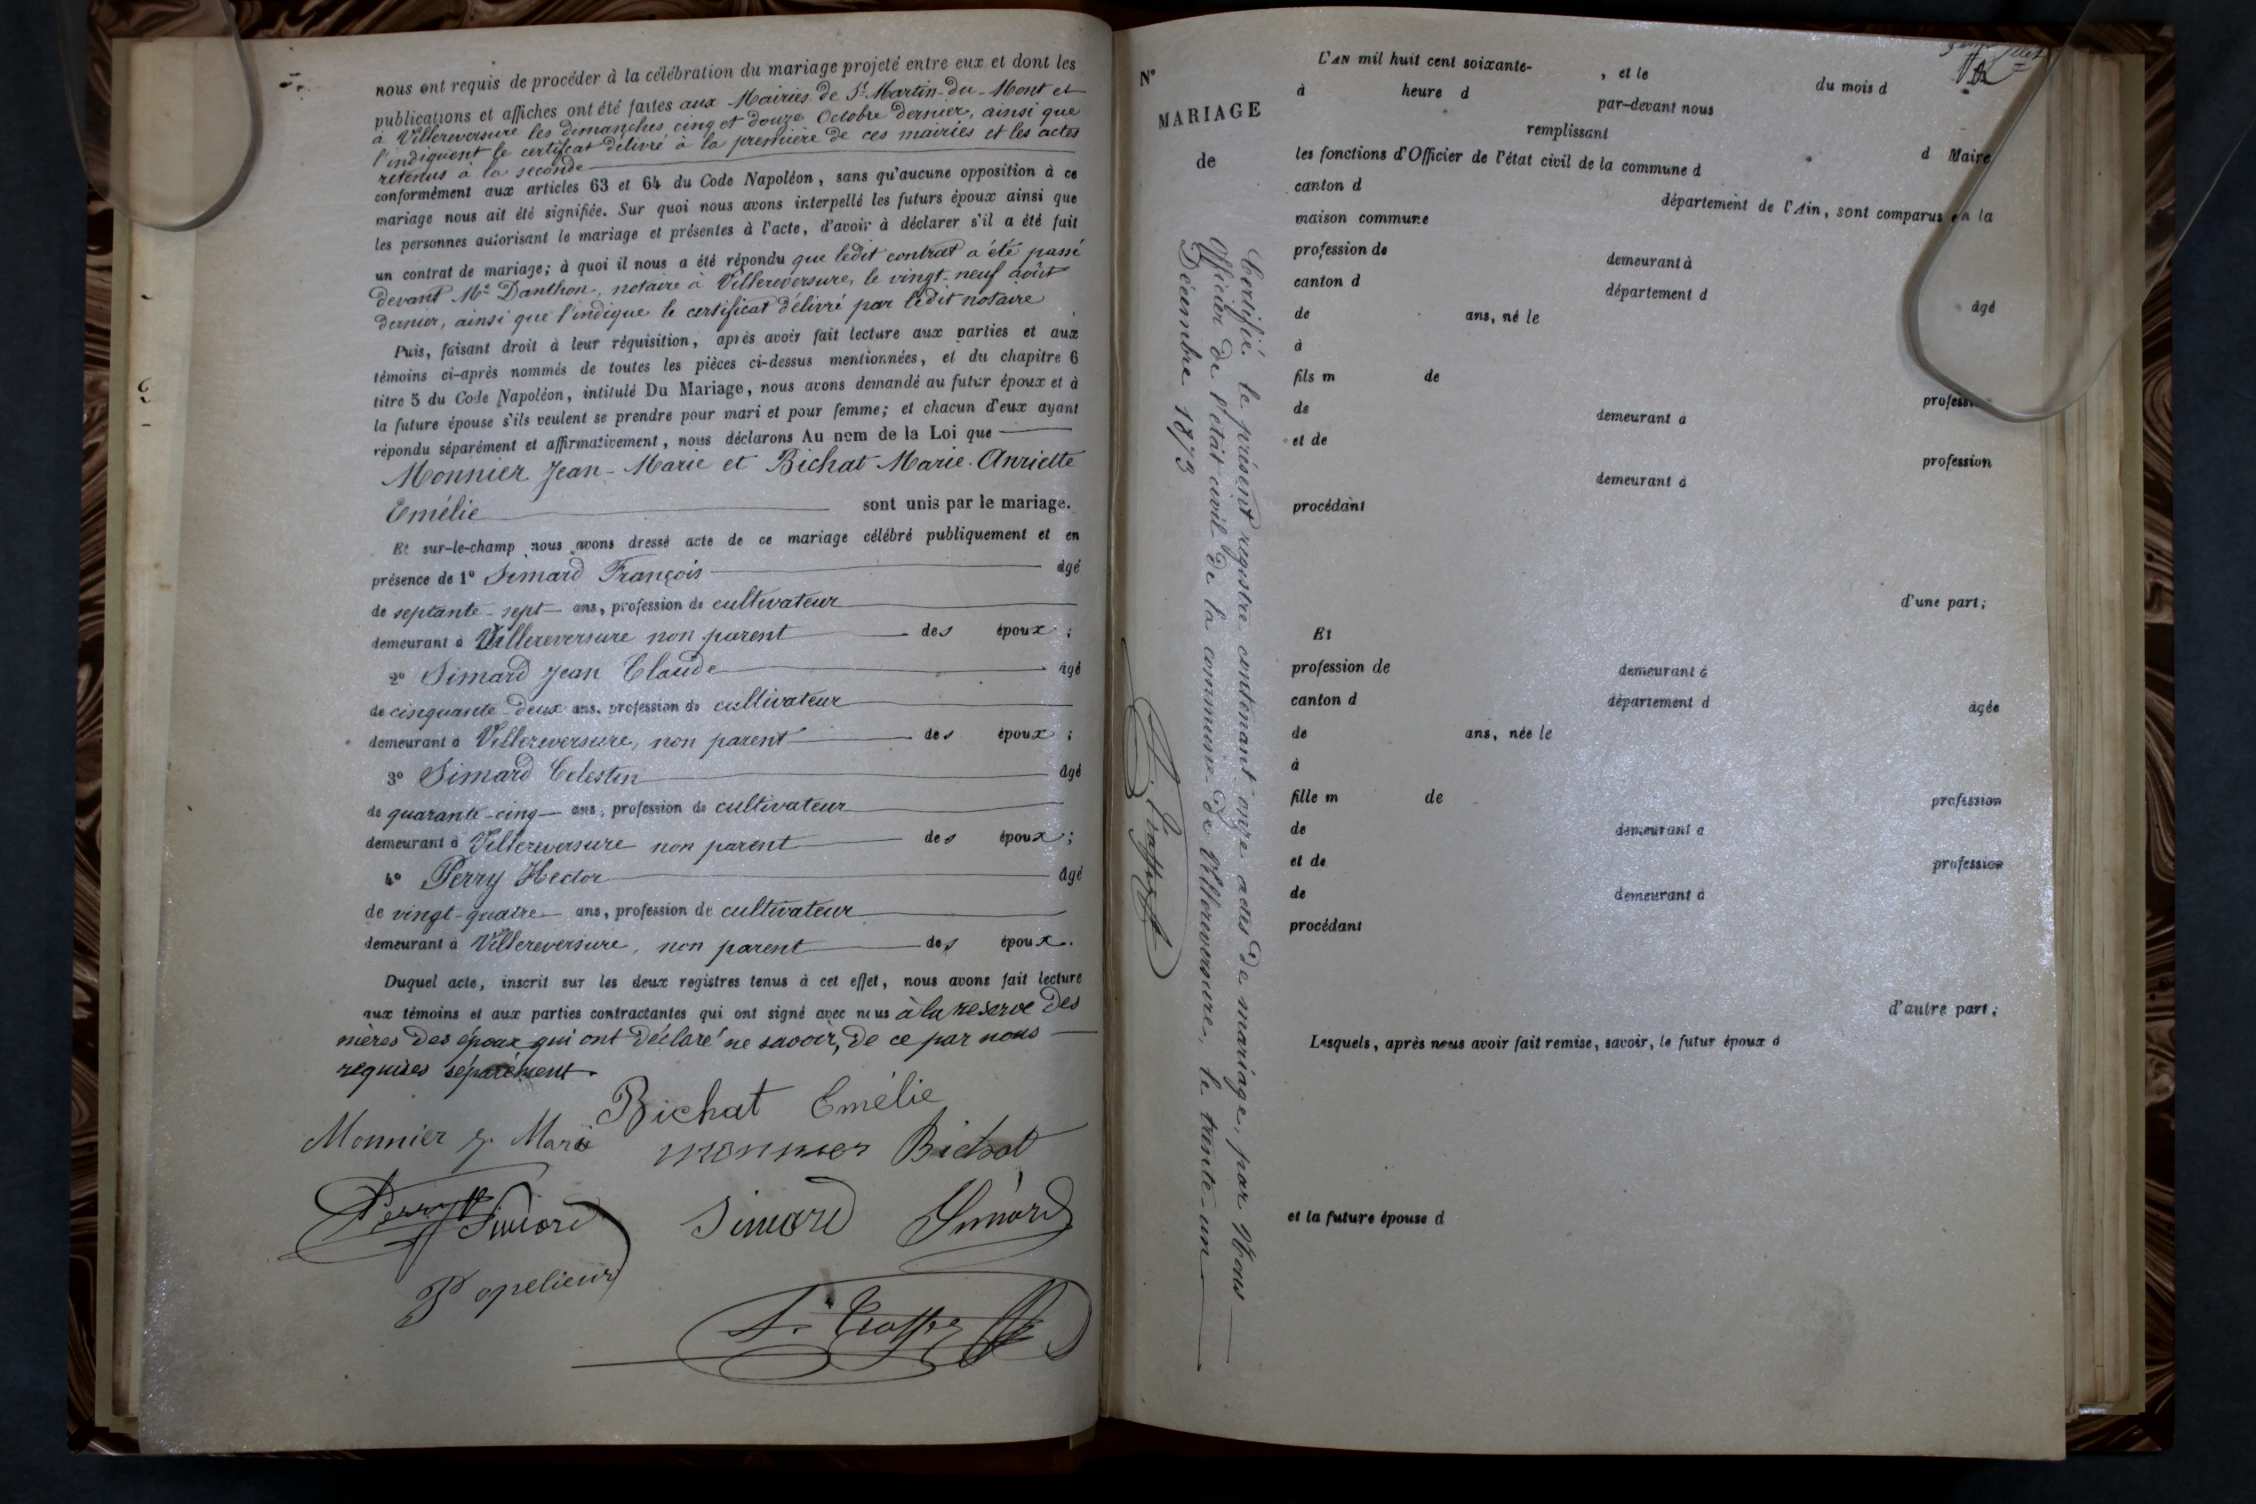 nous ont requis de procéder à la célébration du mariage projeté entre eux et dont les
publications et affiches ont été faites aux Mairies de St Martin-du-Mont et
à Villereversure les dimanches cinq et douze Octobre dernier, ainsi que
l'indiquent le certificat délivré à la première de ces mairies et les actes
retenus à la seconde
conformément aux articles 63 et 64 du Code Napoléon, sans qu'aucune opposition à ce
mariage nous ait été signifiée. Sur quoi nous avons interpellé les futurs époux ainsi que
les personnes autorisant le mariage et présentes à l'acte, d'avoir à déclarer s'il a été fait
un contrat de mariage; à quoi il nous a été répondu que ledit contrat a été passé
devant Me Danthon, notaire à Villereversure, le vingt-neuf août
dernier, ainsi que l'indique le certificat délivré par ledit notaire
Puis, faisant droit à leur réquisition, après avoir fait lecture aux parties et aux
témoins ci-après nommés de toutes les pièces ci-dessus mentionnées, et du chapitre 6
titre 5 du Code Napoléon, intitulé Du Mariage, nous avons demandé au futur époux et à
la future épouse s'ils veulent se prendre pour mari et pour femme; et chacun d'eux ayant
répondu séparément et affirmativement, nous déclarons Au nom de la Loi que
Monnier Jean-Marie et Bichat Marie-Anriette
Emélie sont unis par le mariage.
Et sur-le-champ nous avons dressé acte de ce mariage célébré publiquement et en
présence de 1° Simard François âgé
de septante-sept ans, profession de cultivateur
demeurant à Villereversure non parent des époux;
2° Simard Jean Claude âgé
de cinquante-deux ans, profession de cultivateur
demeurant à Villereversure, non parent des époux;
3° Simard Celestin âgé
de quarante-cinq ans, profession de cultivateur
demeurant à Villereversure non parent des époux;
4° Perry Hector âgé
de vingt-quatre ans, profession de cultivateur
demeurant à Villereversure, non parent des époux.
Duquel acte, inscrit sur les deux registres tenus à cet effet, nous avons fait lecture
aux témoins et aux parties contractantes qui ont signé avec nous à la reserve des
mères des époux qui ont déclaré ne savoir, de ce par nous
requises séparément.
Bichat Emélie
Monnier J. Marie monnier Bichat
Perry Simard Simard Simard
Popelieur
N°
MARIAGE
de
Certifié le présent registre contenant onze actes de mariage, par Nous
Officier de l'état civil de la commune de Villereversure, le trente-un
Décembre 1873
L'AN mil huit cent soixante- , et le du mois d
à heure d par-devant nous
remplissant
les fonctions d'Officier de l'état civil de la commune d d Maire
canton d département de l'Ain, sont comparus en la
maison commune
profession de demeurant à
canton d département d âgé
de ans, né le
à
fils m de profession
de demeurant à
et de profession
demeurant à
procédant
d'une part;
Et
profession de demeurant à
canton d département d âgée
de ans, née le
à
fille m de profession
de demeurant à
et de profession
de demeurant à
procédant
d'autre part;
Lesquels, après nous avoir fait remise, savoir, le futur époux d
et la future épouse d